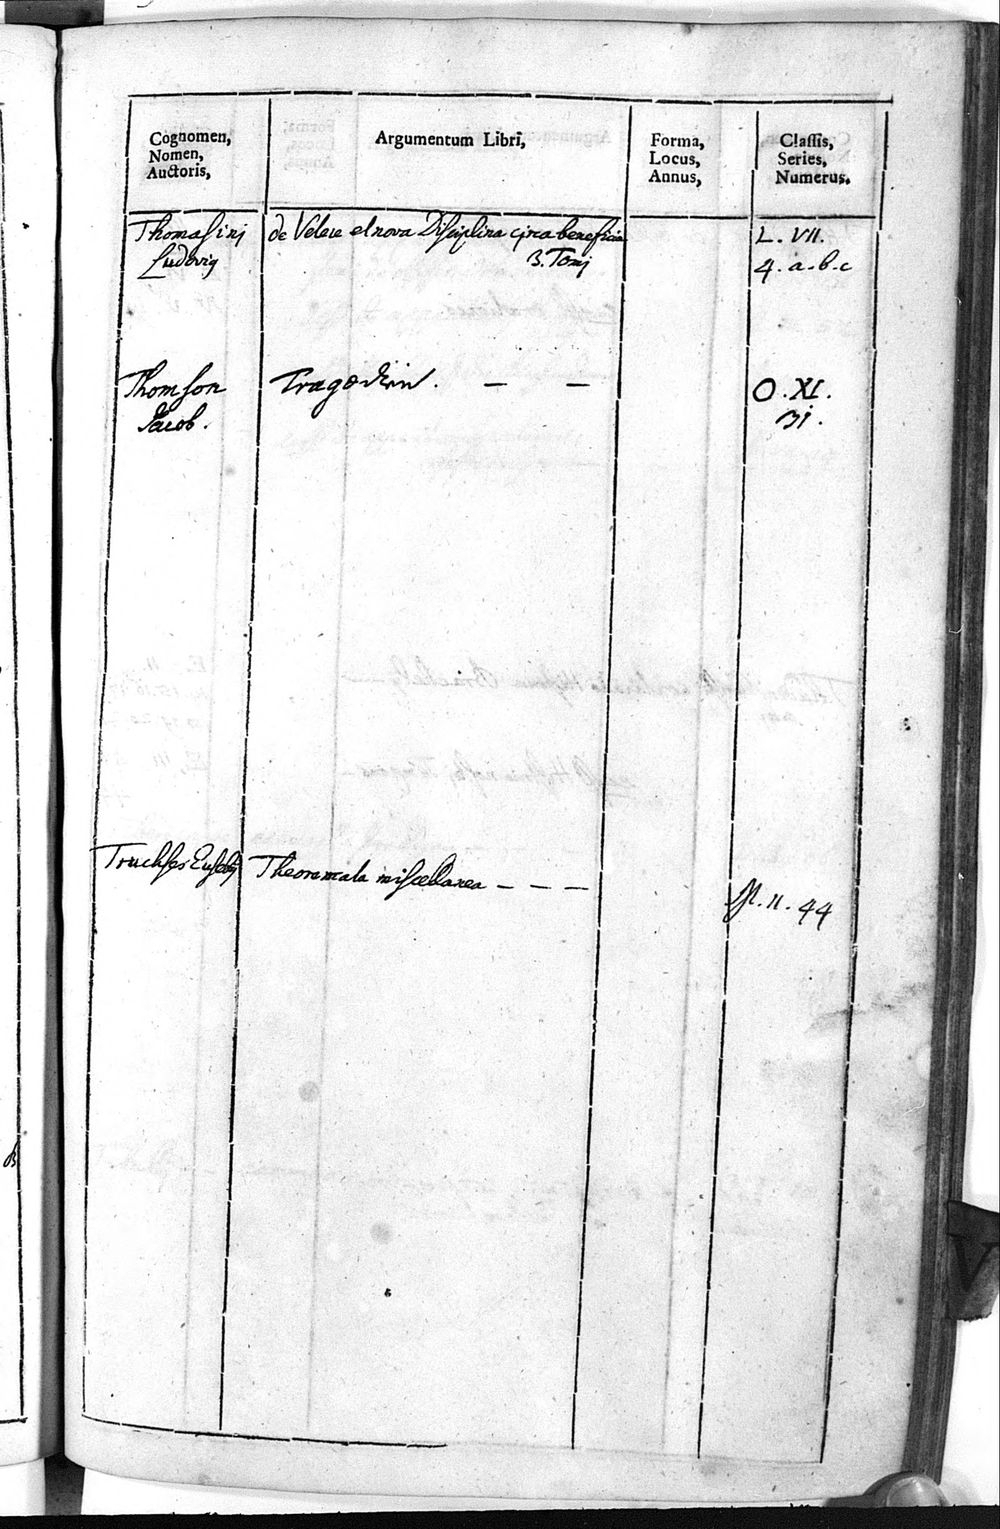 Cognomen,
Nomen,
Auctoris,
Argumentum Libri,
Forma,
Locus,
Annus,
Classis,
Series,
Numerus.
Thomasinj
Ludovig
de Vetere et nova Disciplina circa beneficia
3. Tomj
L. VII.
4. a. b. c
Thomson
Jacob.
Tragœdien. — —
O. XI.
31.
Truchses Eusebij
Theoremata miscellanea — — —
II. 44
V